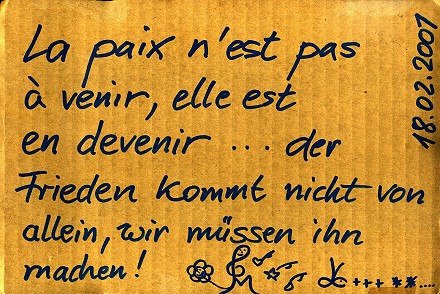 La paix n'est pas
à venir, elle est
en devenir ... der
Frieden kommt nicht von
allein, wir müssen ihn
machen!
18.02.2001